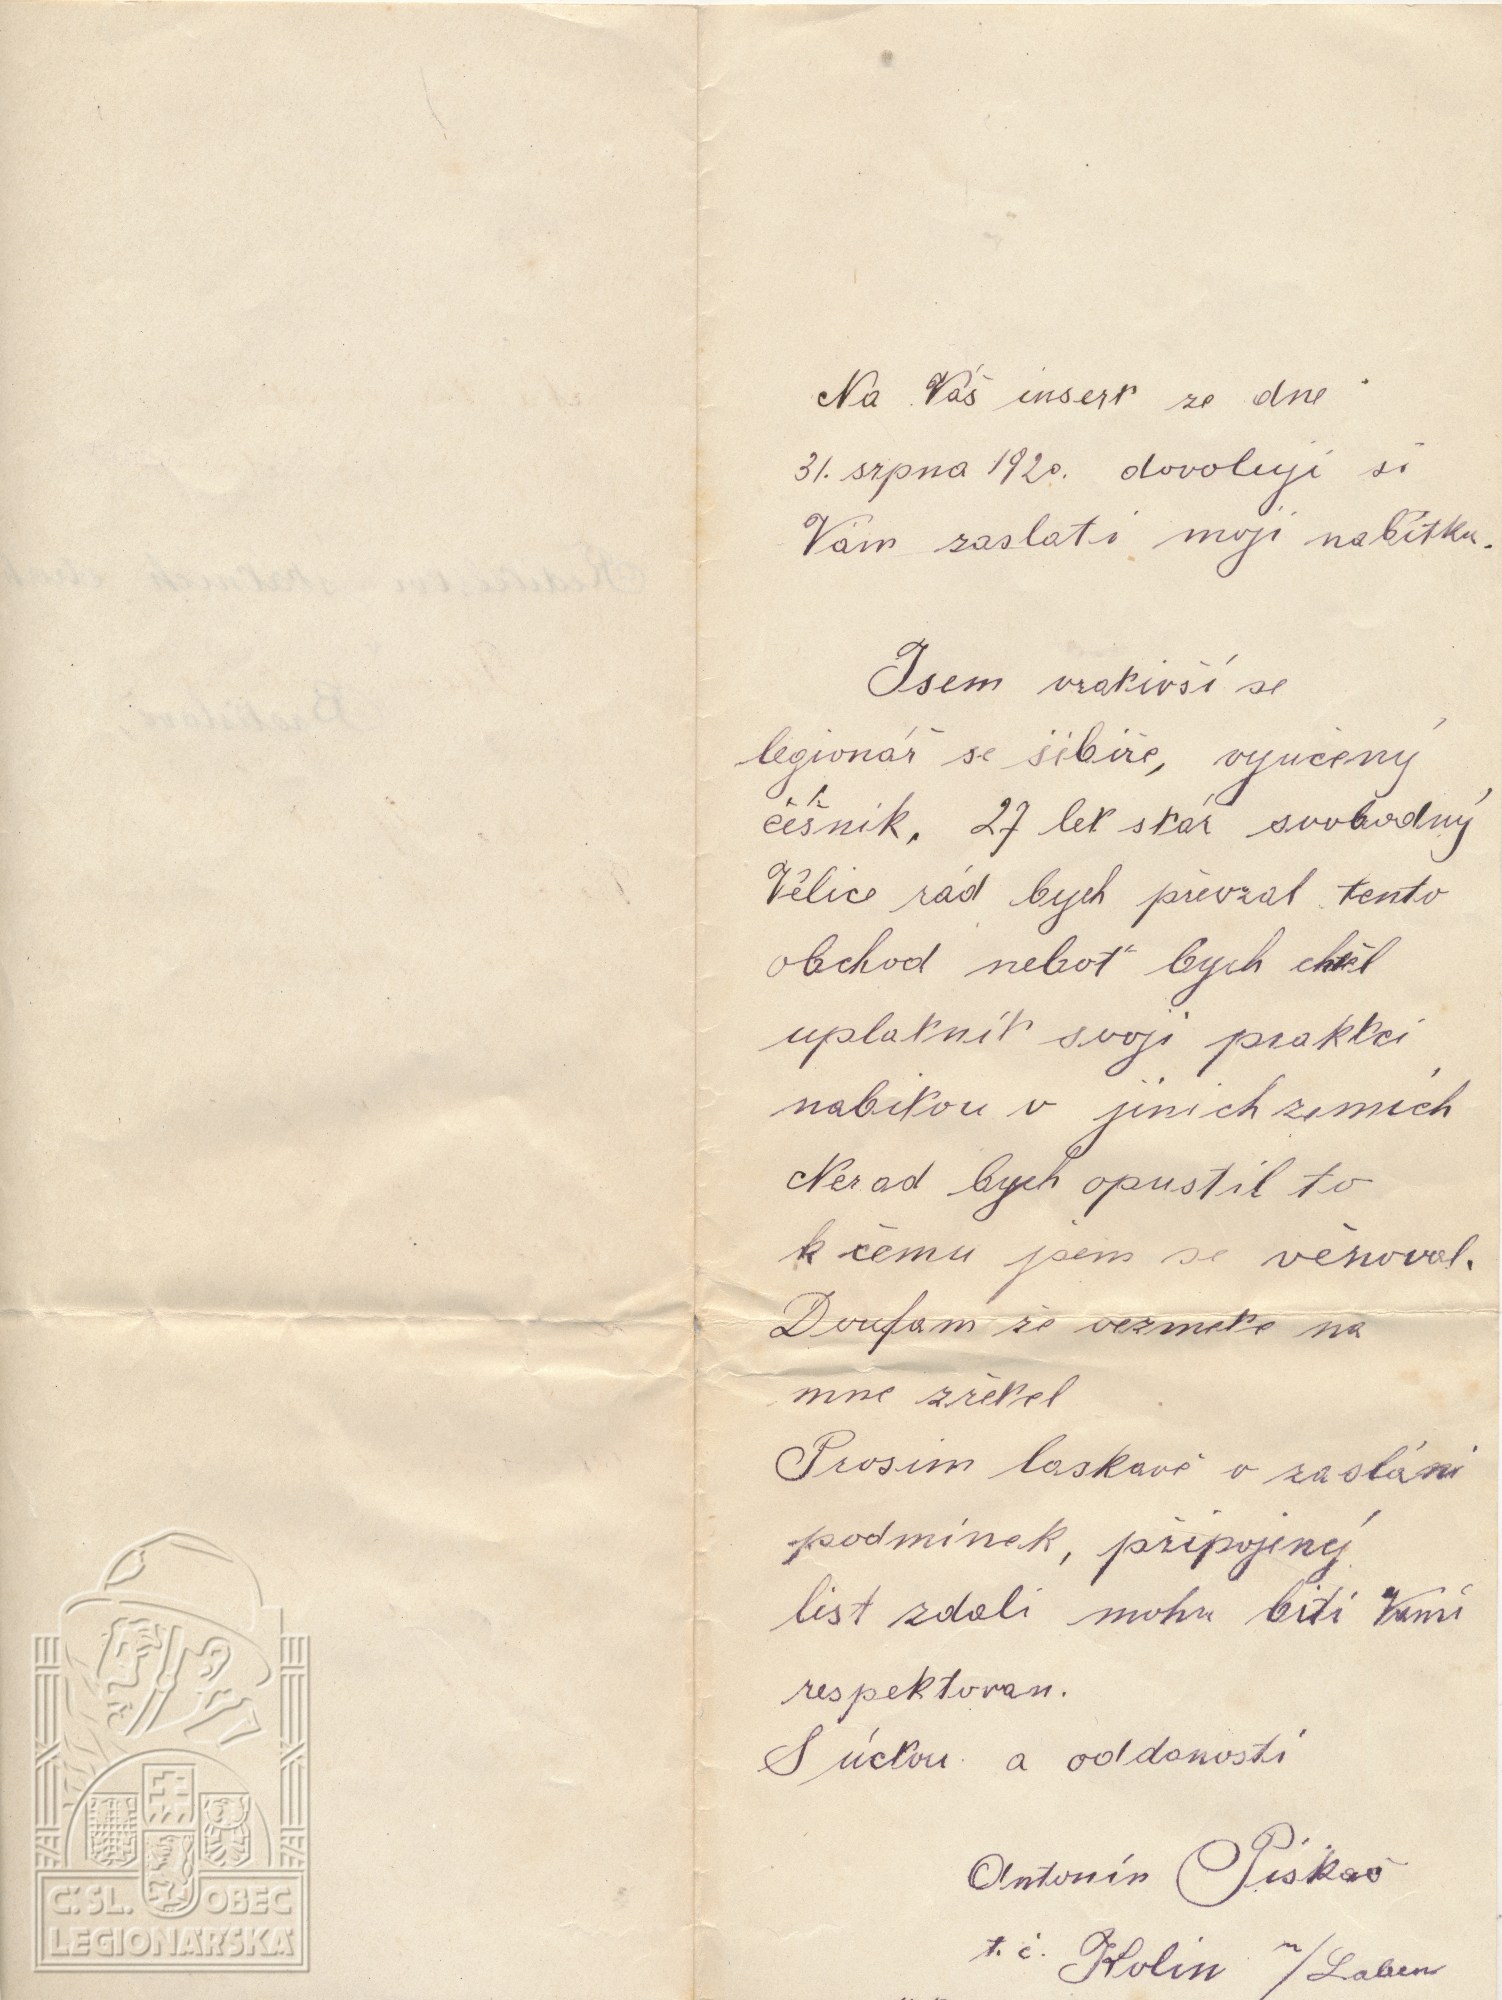 Na Váš insert ze dne
31. srpna 1920. dovoluji si
Vám zaslati moji nabítku.
Jsem vrativší se
legionář se sibiře, vyučený
číšník, 27 let stár svobodný
Velice rád bych převzal tento
obchod neboť bych chtěl
uplatnit svoji praktci
nabitou v jinich zemích
Nerad bych opustil to
k čemu jsem se věnoval.
Doufam že vezmete na
mne zřetel
Prosim laskavě o zasláni
podmínek, připojený
list zdali mohu biti Vami
respektovan.
S úctou a oddanosti
Antonín
t. č. Kolin n/Laben
Č.SL. OBEC
LEGIONÁŘSKÁ